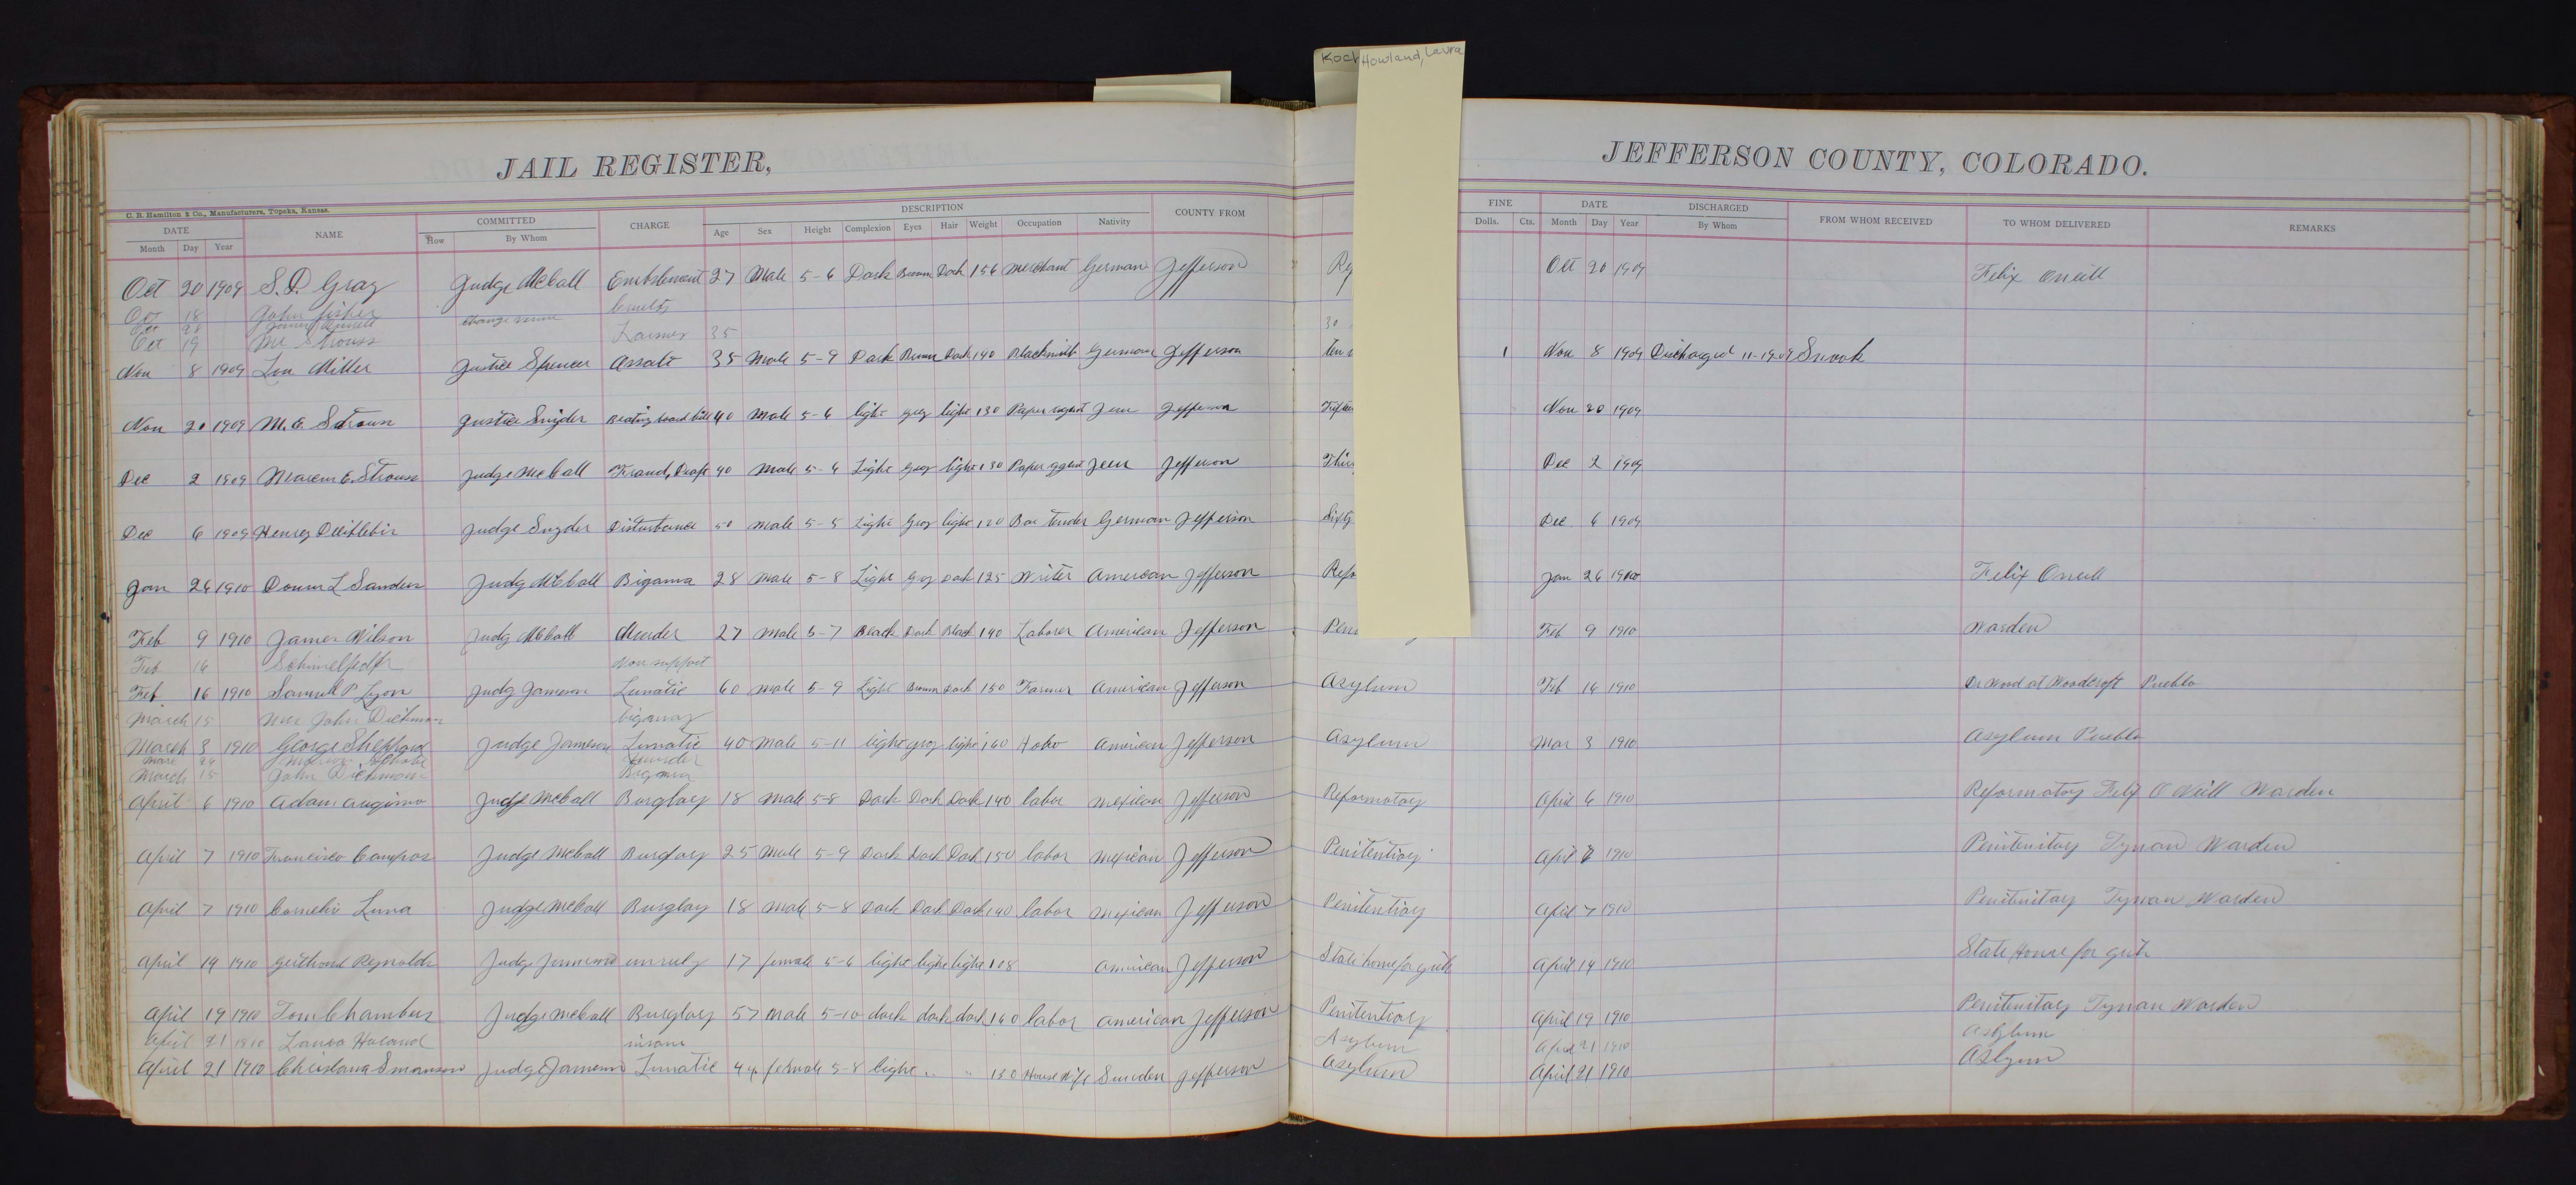 Koch
Howland, Laura
JAIL REGISTER,
JEFFERSON COUNTY, COLORADO.
C. B. Hamilton & Co., Manufacturers, Topeka, Kansas.
DATE NAME COMMITTED CHARGE DESCRIPTION COUNTY FROM FINE DATE DISCHARGED FROM WHOM RECEIVED TO WHOM DELIVERED REMARKS
Month Day Year How By Whom Age Sex Height Complexion Eyes Hair Weight Occupation Nativity Dolls. Cts. Month Day Year By Whom
Oct 20 1909 S. D. Gray Judge McCall 27 Male 5-6 Dark Brown Dark 156 Merchant German Jefferson Oct 20 1909 Felix Oneill
Oct 18 John Fisher
Oct 28 change venue
Oct 19 Mr Strouss 35 30
Nov 8 1909 Lou Miller Justice Spencer 35 Male 5-9 Dark Brown Dark 190 German Jefferson 1 Nov 8 1909 Discharged 11-19-09 Snook
Nov 20 1909 M. E. Justice Snyder 40 Male 5-6 light grey light 130 Jefferson Nov 20 1909
Dec 2 1909 E. Strouss Judge McCall Fraud, Draft 40 Male 5-6 Light Grey light 130 Jefferson Dec 2 1909
Dec 6 1909 Henry Judge Snyder Disturbance 50 Male 5-5 Light Grey light 120 Bar tender German Jefferson Dec 6 1909
Jan 26 1910 L Sanders Judg McCall Bigama 28 Male 5-8 Light Grey Dark 125 Writer American Jefferson Jan 26 1910 Felix Oneill
Feb 9 1910 James Wilson Judg McCall Murder 27 Male 5-7 Black Dark Black 190 Laborer American Jefferson Feb 9 1910 Warden
Feb 16 Non support
Feb 16 1910 Samuel P. Lyon Judg Jameson Lunatic 60 Male 5-9 Light Brown Dark 150 Farmer American Jefferson Asylum Feb 16 1910 Dr Word at Woodcroft Pueblo
March 15 Mrs John Dickman bigamy
March 3 1910 George Sheppard Judge Jameson Lunatic 40 Male 5-11 light grey light 160 Hobo American Jefferson Asylum Mar 3 1910 Asylum Pueblo
Marc 24 murder
March 15 John Dickman Bigamy
April 6 1910 Adam Judge McCall Burglary 18 Male 5-8 Dark Dark Dark 140 labor Mexican Jefferson Reformatory April 6 1910 Reformatory Felix O Neill Warden
April 7 1910 Francisco Campos Judge McCall Burglary 25 Male 5-9 Dark Dark Dark 150 labor Mexican Jefferson Penitentiary April 7 1910 Penitenitary Tynan Warden
April 7 1910 Cornelio Luna Judge McCall Burglary 18 Male 5-8 Dark Dark Dark 140 labor Mexican Jefferson Penitentiary April 7 1910 Penitenitary Tynan Warden
April 19 1910 Reynolds Judge unruly 17 female 5-6 light light light 108 American Jefferson State home for girls April 19 1910 State Home for girls
April 19 1910 Tom Chambers Judge McCall Burglary 57 Male 5-10 dark dark dark 160 labor American Jefferson Penitentiary April 19 1910 Penitenitary Tynan Warden
April 21 1910 Laura Holand insane Asylum April 21 1910 Asylum
April 21 1910 Judge Jameson Lunatic 44 female 5-8 light " " 130 House Wife Sweden Jefferson Asylum April 21 1910 Aslyum